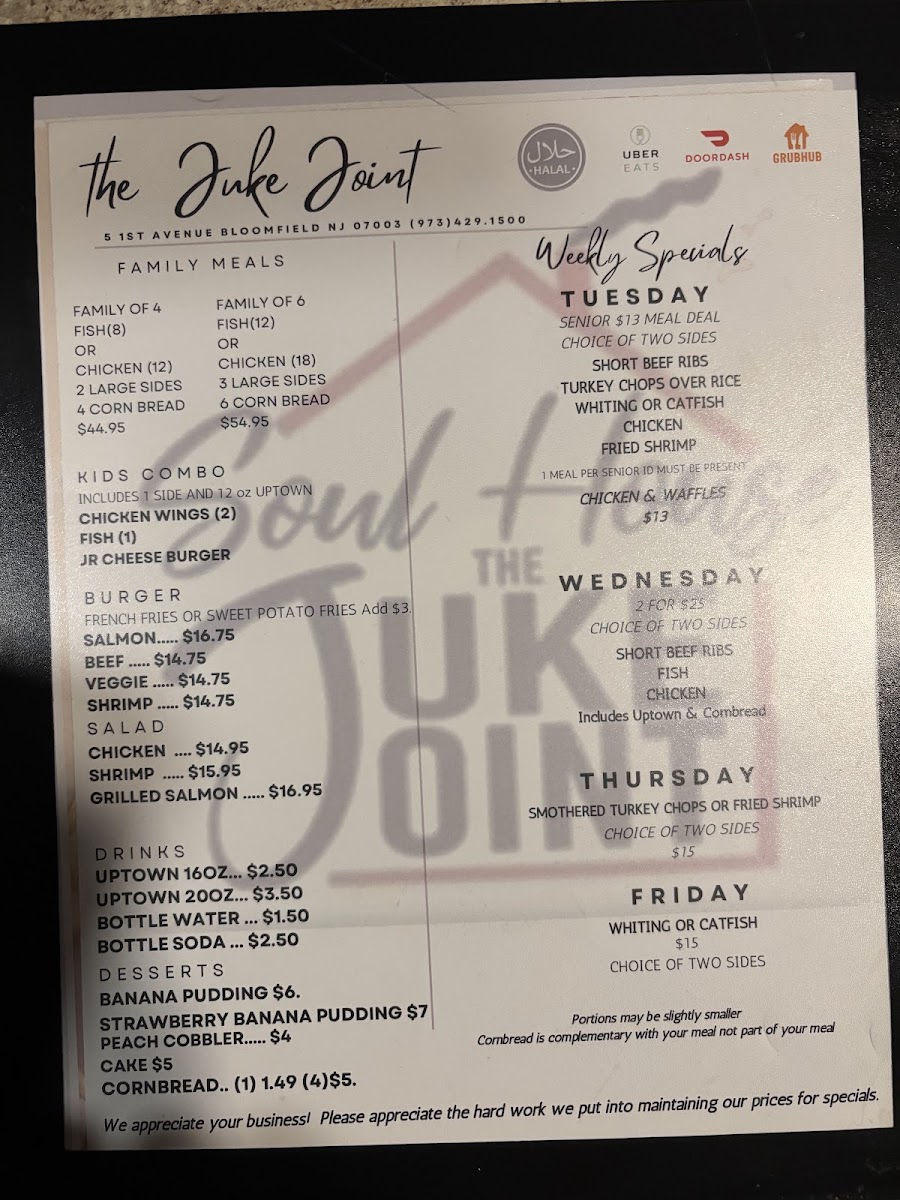 the Juke Joint
حلال
HALAL
UBER
EATS
DOORDASH
GRUBHUB
5 1ST AVENUE BLOOMFIELD NJ 07003 (973)429.1500
FAMILY MEALS
FAMILY OF 4
FISH(8)
OR
CHICKEN (12)
2 LARGE SIDES
4 CORN BREAD
$44.95
FAMILY OF 6
FISH(12)
OR
CHICKEN (18)
3 LARGE SIDES
6 CORN BREAD
$54.95
KIDS COMBO
INCLUDES 1 SIDE AND 12 oz UPTOWN
CHICKEN WINGS (2)
FISH (1)
JR CHEESE BURGER
BURGER
FRENCH FRIES OR SWEET POTATO FRIES Add $3.
SALMON..... $16.75
BEEF ..... $14.75
VEGGIE ..... $14.75
SHRIMP ..... $14.75
SALAD
CHICKEN .... $14.95
SHRIMP ..... $15.95
GRILLED SALMON ..... $16.95
DRINKS
UPTOWN 16OZ... $2.50
UPTOWN 20OZ... $3.50
BOTTLE WATER ... $1.50
BOTTLE SODA ... $2.50
DESSERTS
BANANA PUDDING $6.
STRAWBERRY BANANA PUDDING $7
PEACH COBBLER..... $4
CAKE $5
CORNBREAD.. (1) 1.49 (4)$5.
Weekly Specials
TUESDAY
SENIOR $13 MEAL DEAL
CHOICE OF TWO SIDES
SHORT BEEF RIBS
TURKEY CHOPS OVER RICE
WHITING OR CATFISH
CHICKEN
FRIED SHRIMP
1 MEAL PER SENIOR ID MUST BE PRESENT
CHICKEN & WAFFLES
$13
WEDNESDAY
2 FOR $25
CHOICE OF TWO SIDES
SHORT BEEF RIBS
FISH
CHICKEN
Includes Uptown & Cornbread
THURSDAY
SMOTHERED TURKEY CHOPS OR FRIED SHRIMP
CHOICE OF TWO SIDES
$15
FRIDAY
WHITING OR CATFISH
$15
CHOICE OF TWO SIDES
Portions may be slightly smaller
Cornbread is complementary with your meal not part of your meal
We appreciate your business! Please appreciate the hard work we put into maintaining our prices for specials.
Soul House
THE
JUKE
JOINT